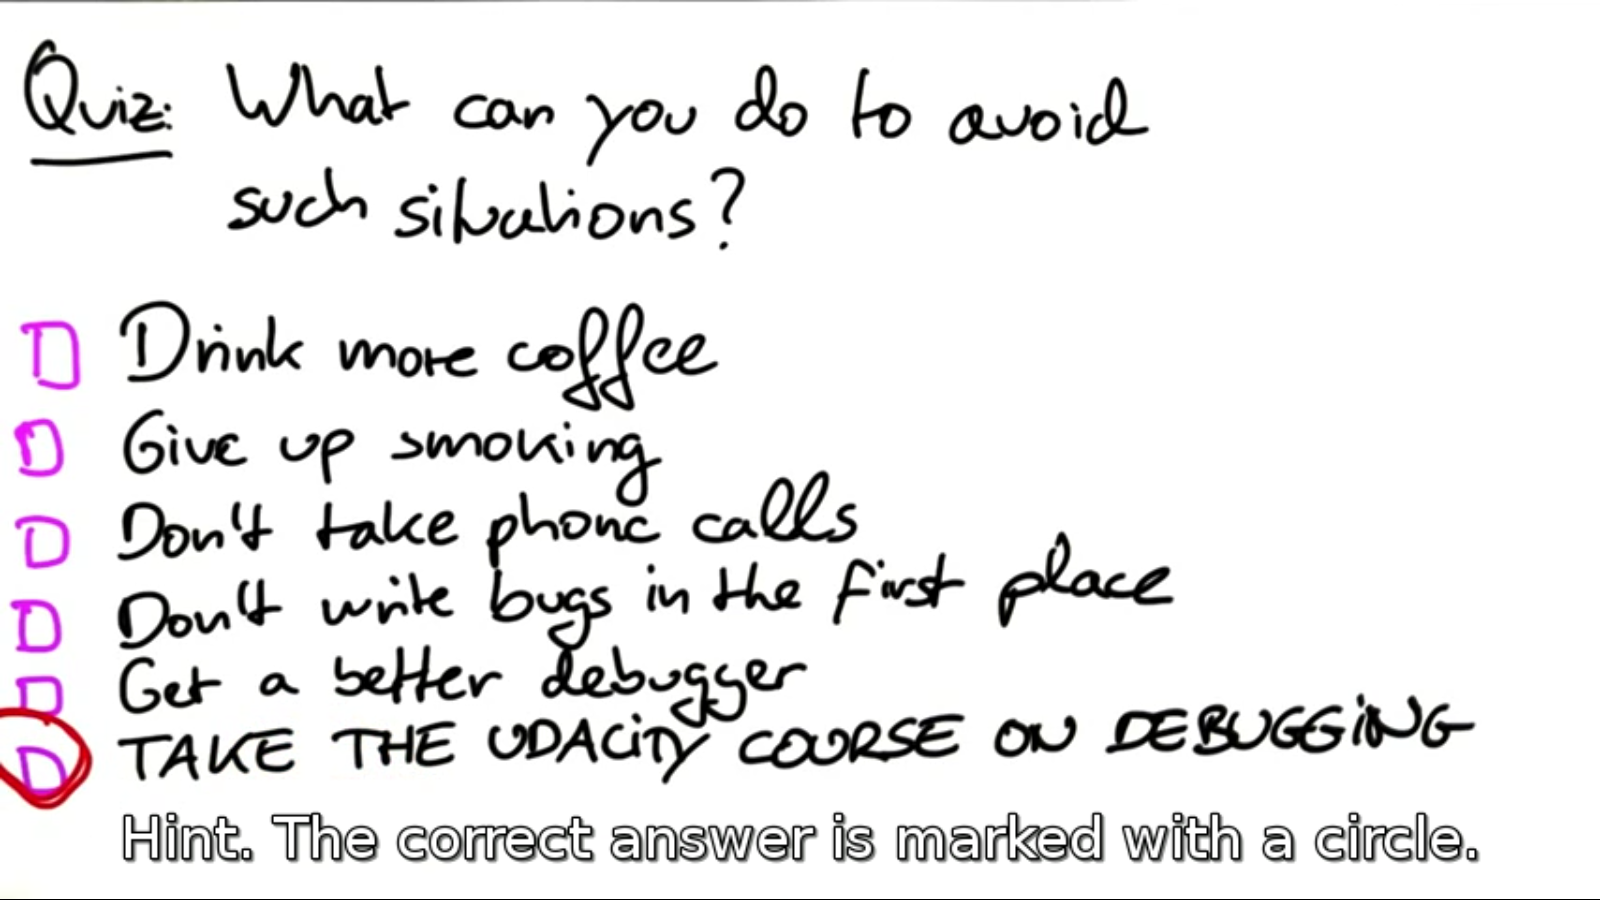 Quiz: What can you do to avoid
such situations?
Drink more coffee
Give up smoking
Don't take phone calls
Don't write bugs in the first place
Get a better debugger
TAKE THE UDACITY COURSE ON DEBUGGING
Hint. The correct answer is marked with a circle.